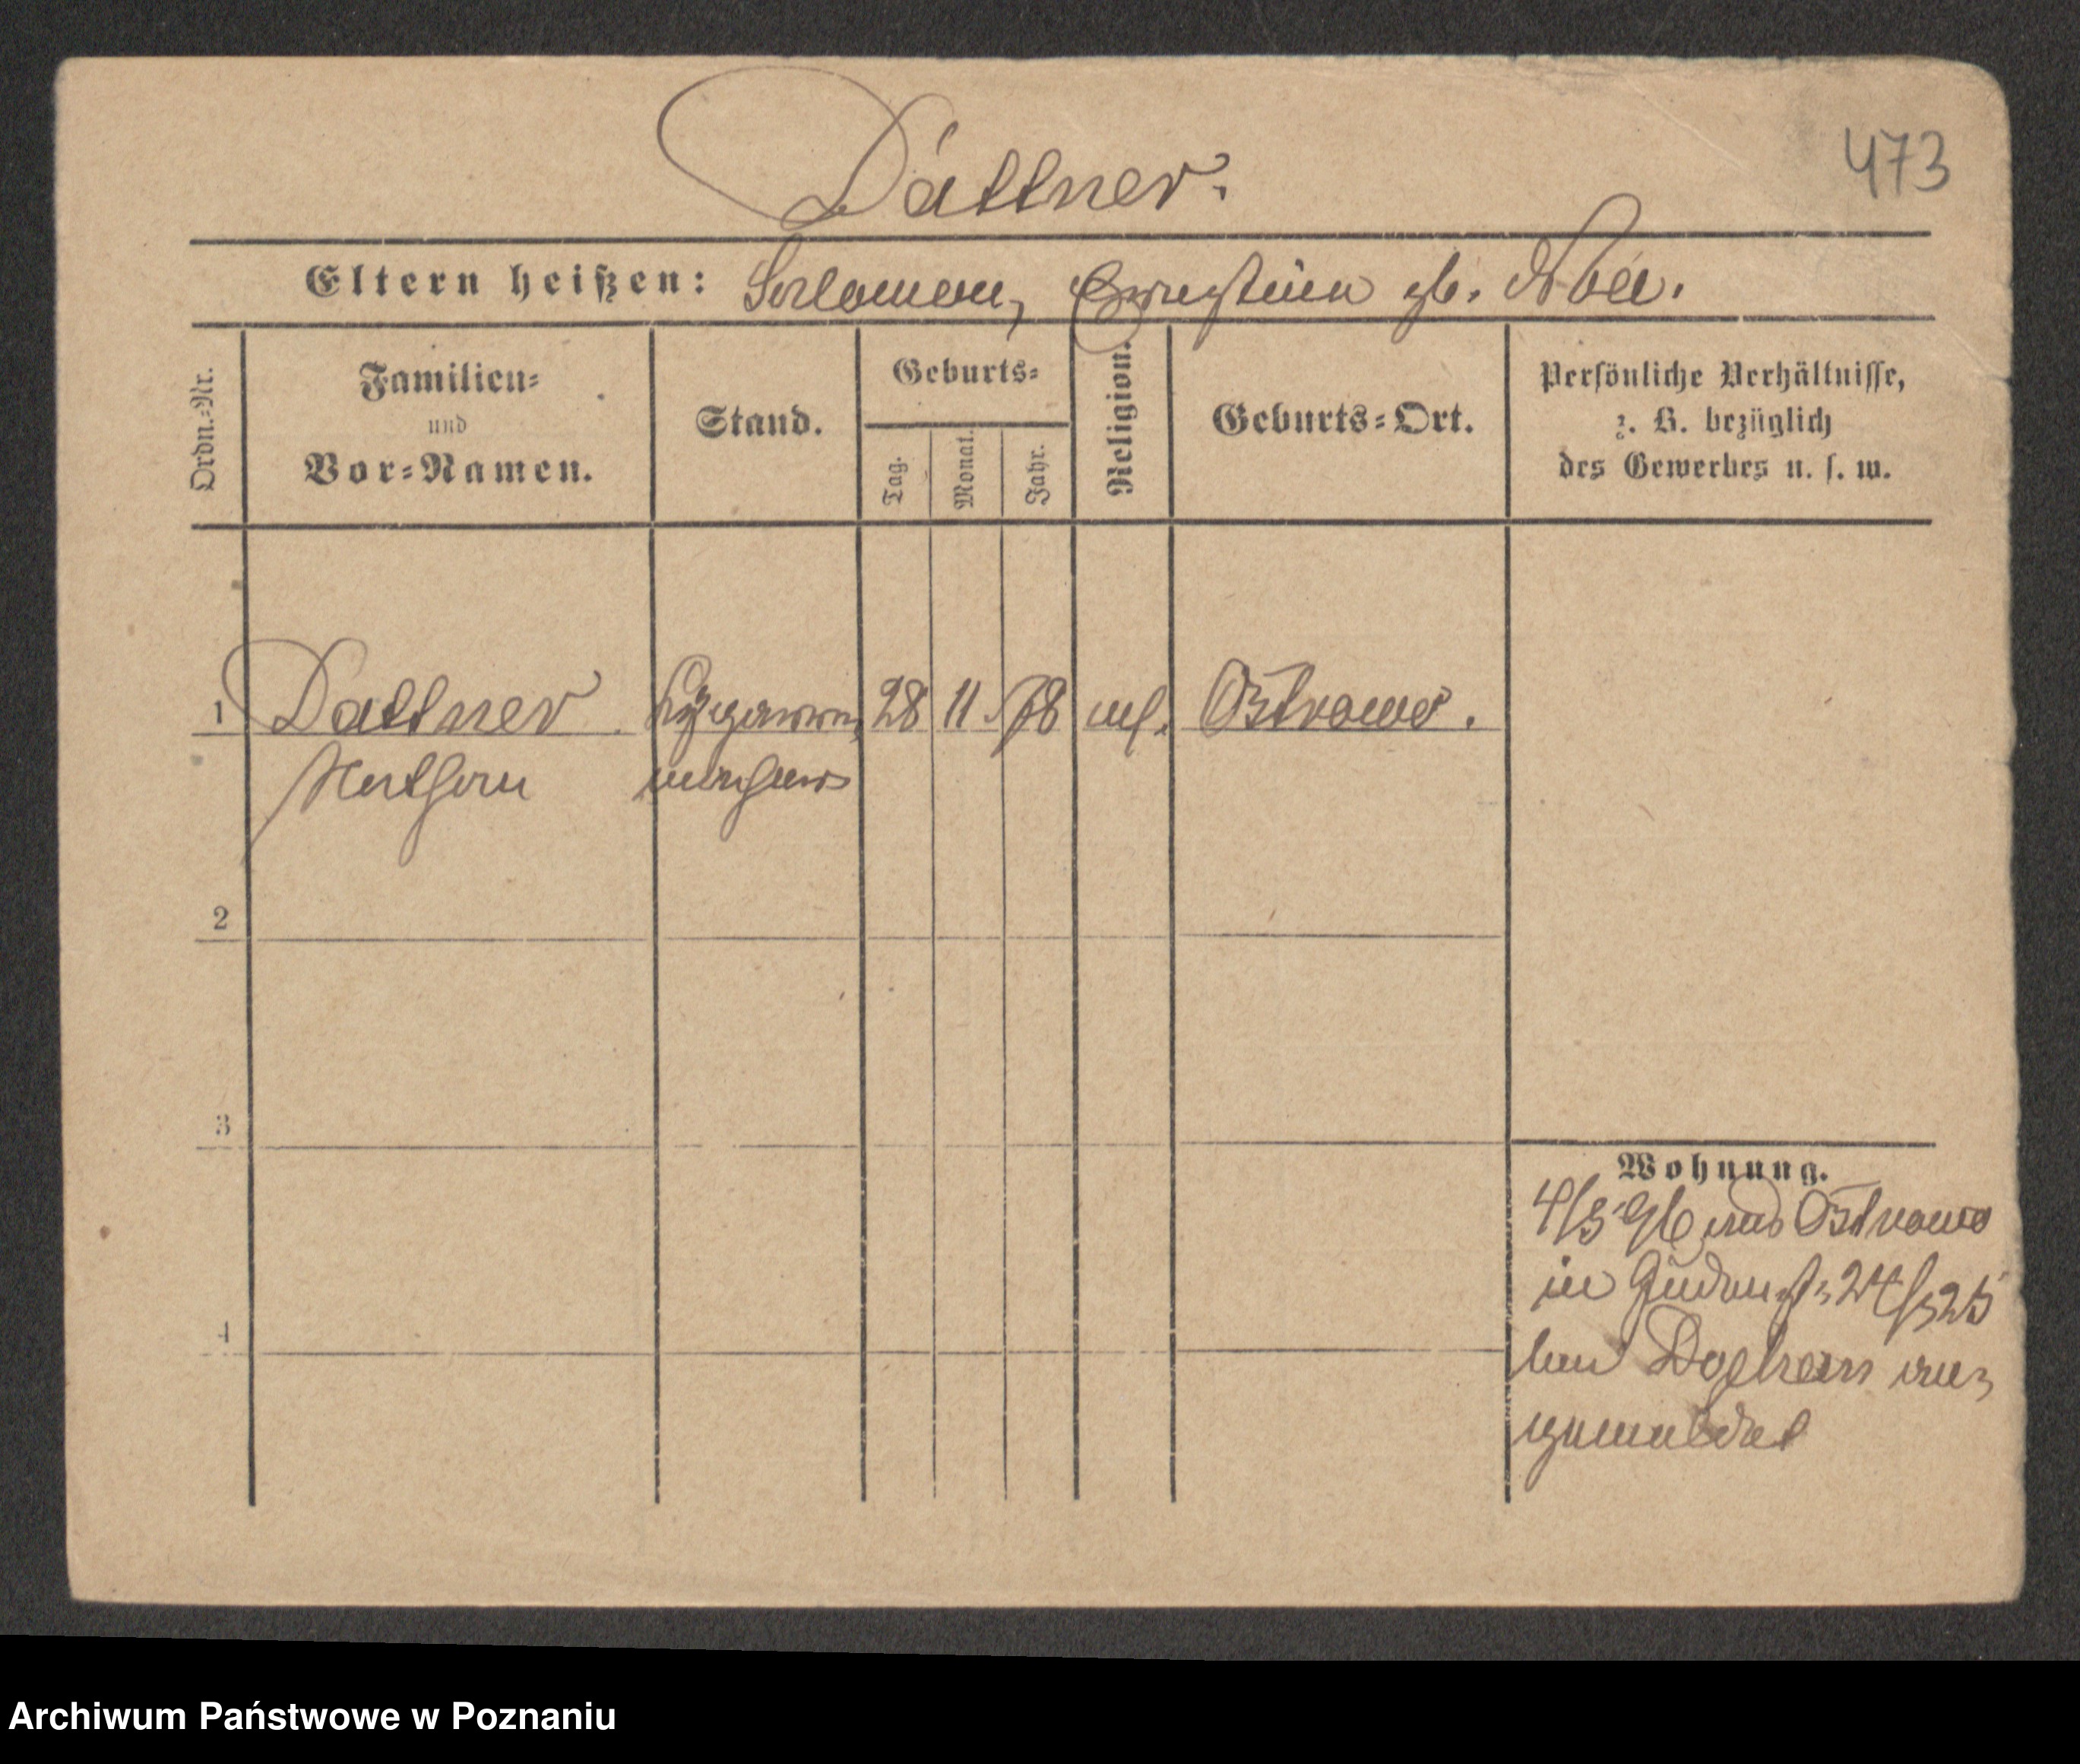 Dattner.
473
Eltern heißen: Salomon, Ernestine gb. Noa.
Ordn.=Nr.
Familien=
und
Vor=Namen.
Stand.
Geburts=
Tag.
Monat.
Jahr.
Religion.
Geburts=Ort.
Persönliche Verhältnisse,
z. B. bezüglich
des Gewerbes u. s. w.
1 Dattner 28 11 78 Ostrowo.
Nathan
2
3
Wohnung.
4/5 96 aus Ostrowo
in 24/25
bei an=
gemeldet
4
Archiwum Państwowe w Poznaniu